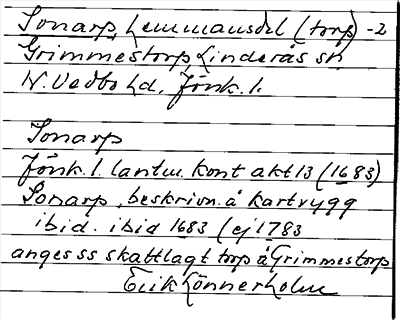 Sonarp, Lemmansdel (torp) -2
Grimmestorp, Linderås sn
N. Vedbo hd, Jönk. l.
Sonarp
Jönk. l. lantm. kont akt 13 (1683)
Sonarp, beskrivn. å kartrygg
ibid. ibid 1683 (ej 1783
anges ss skattlagt torp å Grimmestorp
Erik Lönnerholm